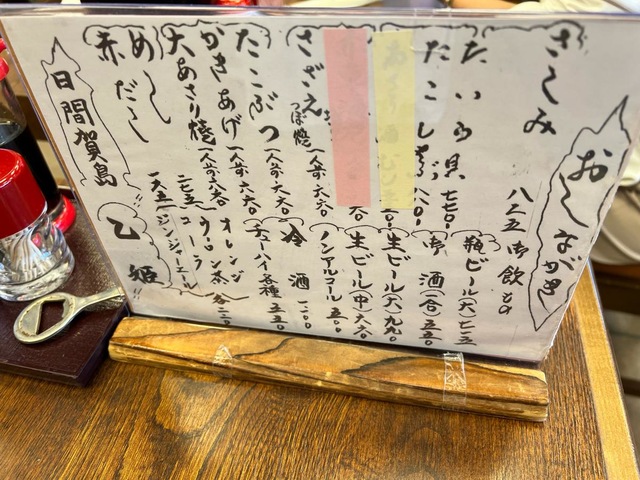 おしながき
さしみ 八二五
たいら貝 七七〇
たこしゃぶ 八八〇
さざえ つぼ焼 一人前 六六〇
たこぶつ 一人前 六六〇
かきあげ 一人前 六六〇
大あさり焼
めし
赤だし
御飲もの
瓶ビール(大) 七一五
御酒(一合) 五五〇
生ビール(大) 九九〇
生ビール(中) 六六〇
ノンアルコール 五五〇
冷酒
チューハイ各種 五五〇
オレンジ
ウーロン茶
コーラ
ジンジャーエール
各二二〇
日間賀島
乙姫